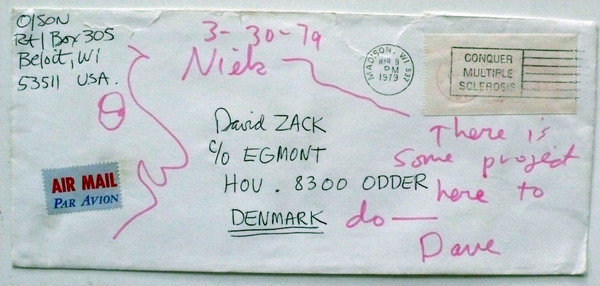 O/SON
Rt/ Box 305
Beloit, WI
53511 USA.
3-30-79
Niels
MADISON, WI 537
PM
1979
CONQUER
MULTIPLE
SCLEROSIS
David ZACK
c/o EGMONT
HOU . 8300 ODDER
DENMARK
AIR MAIL
PAR AVION
There is
some project
here to
do —
Dave